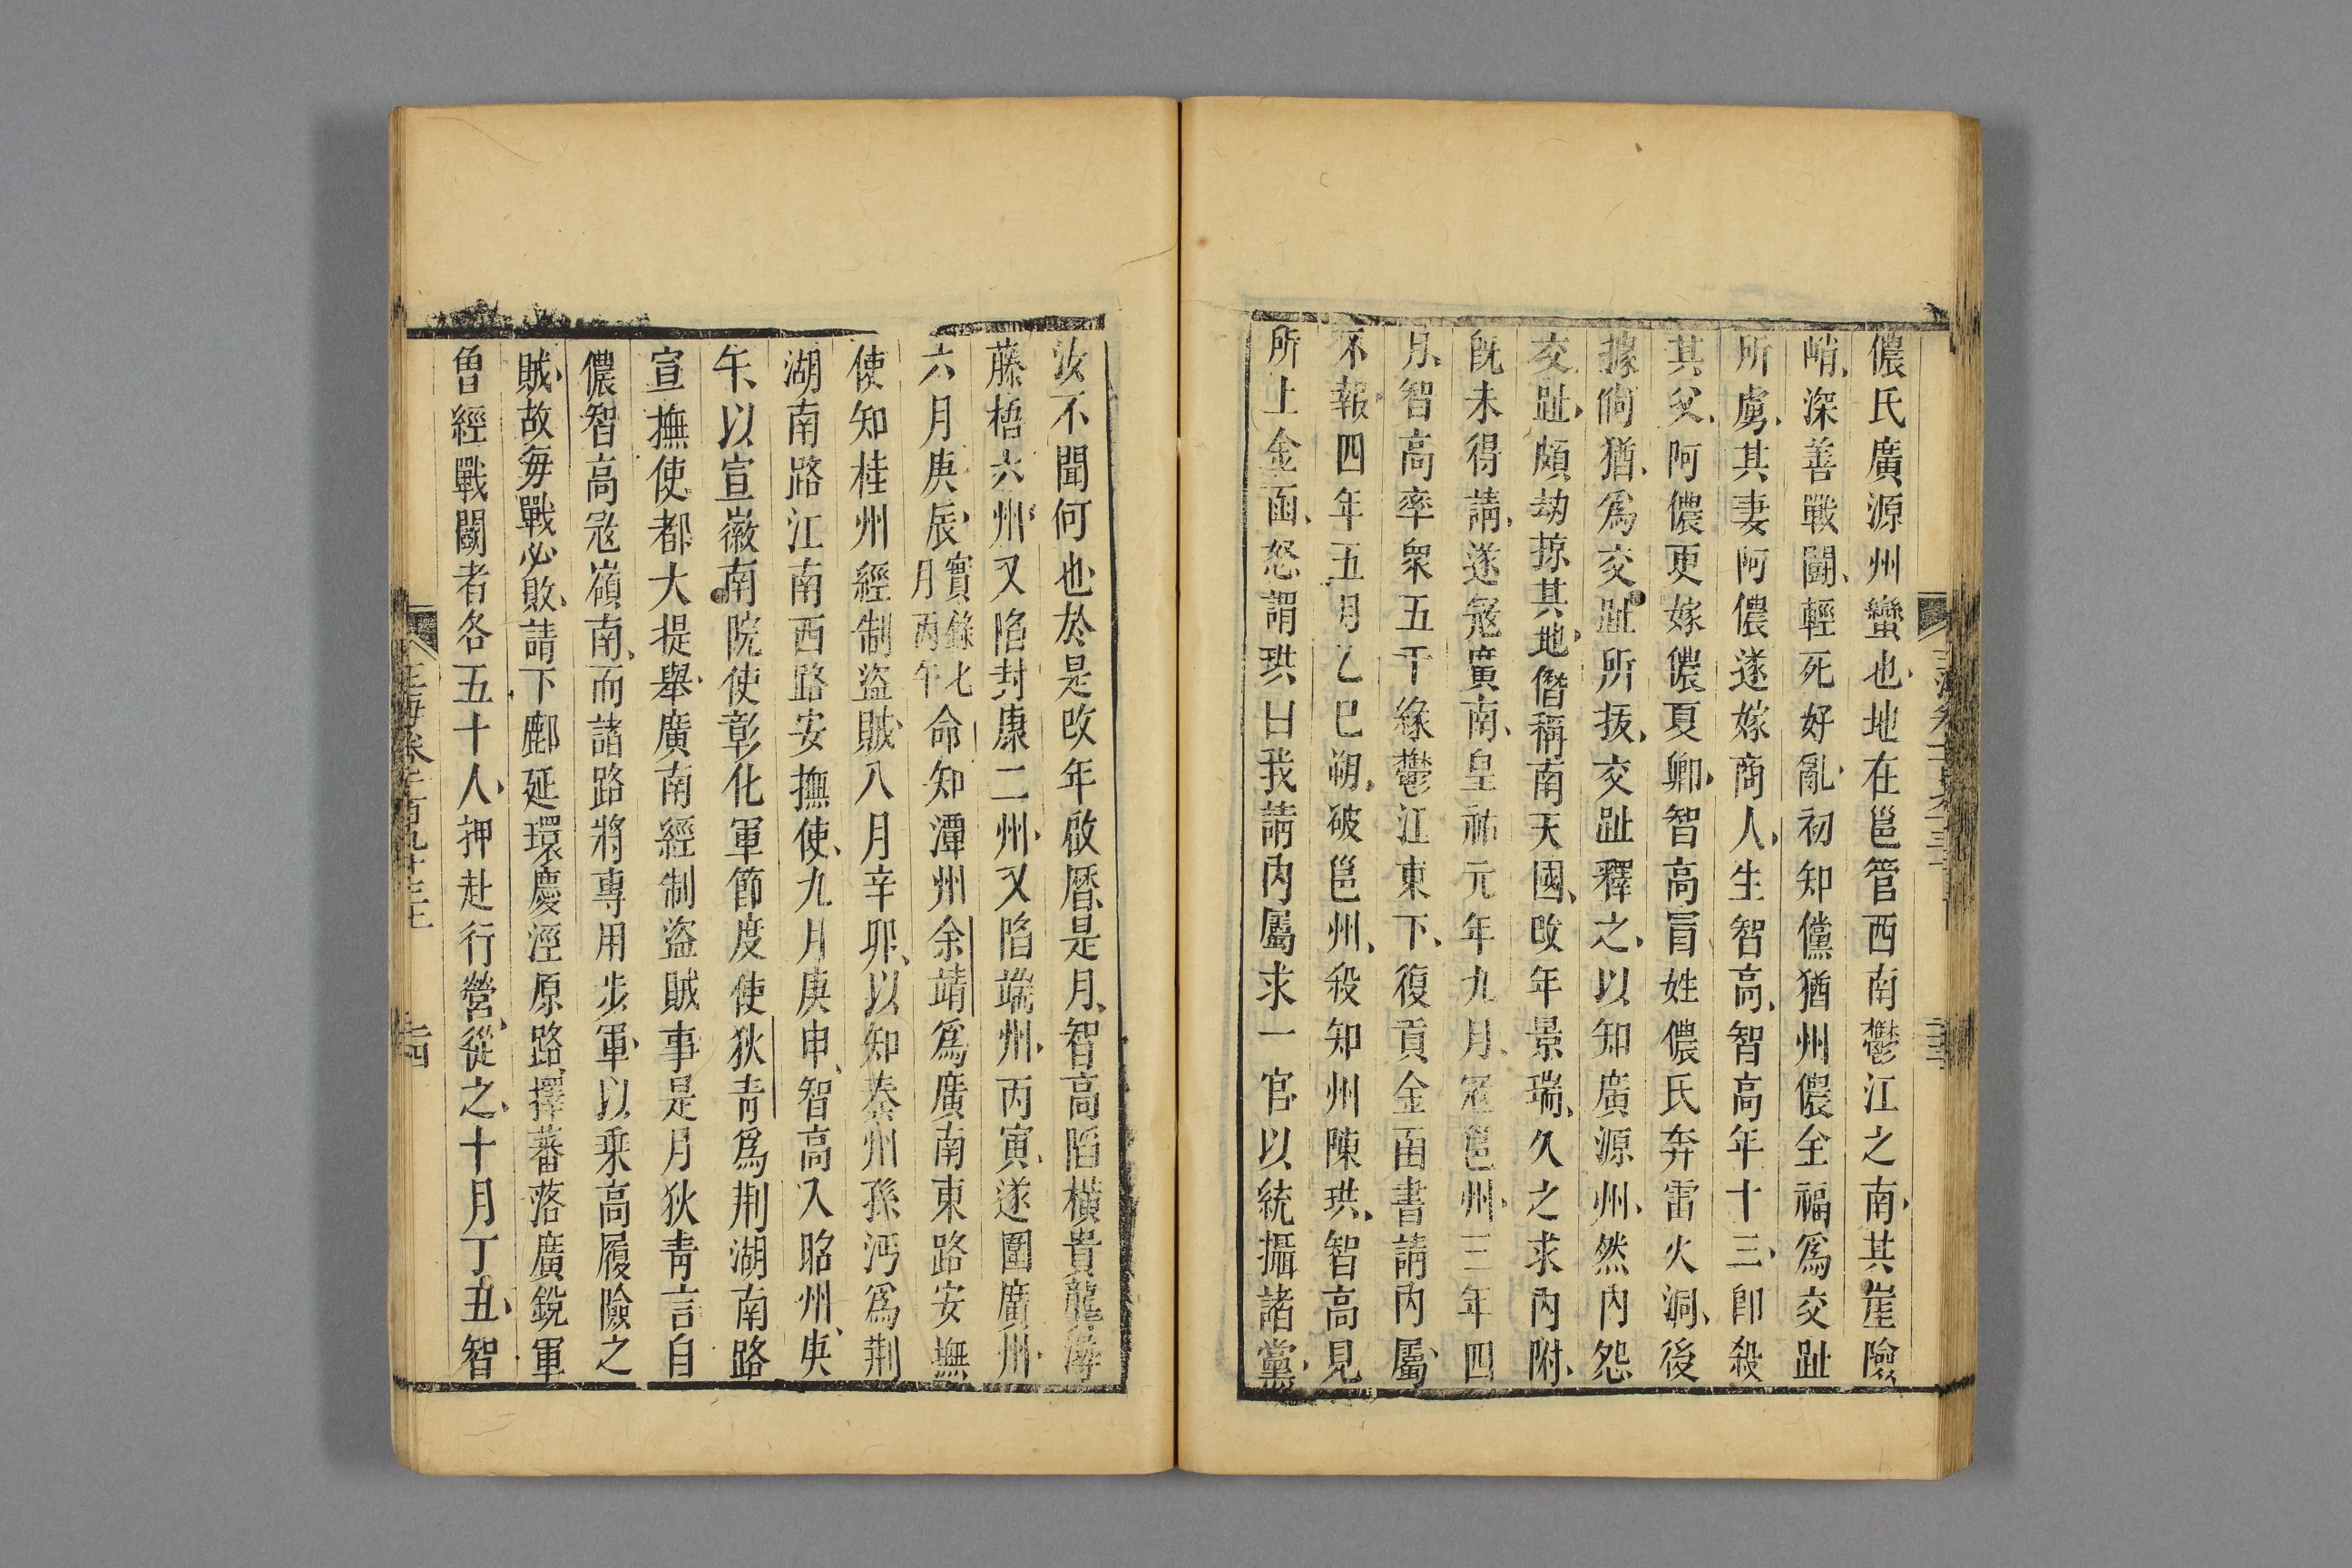 儂氏廣源州蠻也地在邕管西南鬱江之南其崖險
峭深善戰鬬輕死好亂初知儻猶州儂全福爲交趾
所虜其妻阿儂遂嫁商人生智高智高年十三卽殺
其父阿儂更嫁儂夏卿智高冐姓儂氏奔雷火洞後
據倘猶爲交趾所拔交趾釋之以知廣源州然內怨
交趾頗劫掠其地僭稱南天國改年景瑞久之求內附
旣未得請遂寇廣南皇祐元年九月寇邕州三年四
月智高率衆五千緣鬱江東下復貢金函書請內屬
不報四年五月乙巳朔破邕州殺知州陳珙智高見
所上金函怒謂珙曰我請內屬求一官以統攝諸黨
汝不聞何也於是改年啟曆是月智高陷橫貴龔潯
藤梧六州又陷封康二州又陷端州丙寅遂圍廣州
六月庚辰實錄七月丙午命知潭州余靖爲廣南東路安撫
使知桂州經制盜賊八月辛卯以知秦州孫沔爲荆
湖南路江南西路安撫使九月庚申智高入昭州庚
午以宣徽南院使彰化軍節度使狄青爲荆湖南路
宣撫使都大提舉廣南經制盜賊事是月狄青言自
儂智高寇嶺南而諸路將專用步軍以乘高履險之
賊故每戰必敗請下鄜延環慶涇原路擇蕃落廣銳軍
曾經戰鬬者各五十人押赴行營從之十月丁丑智